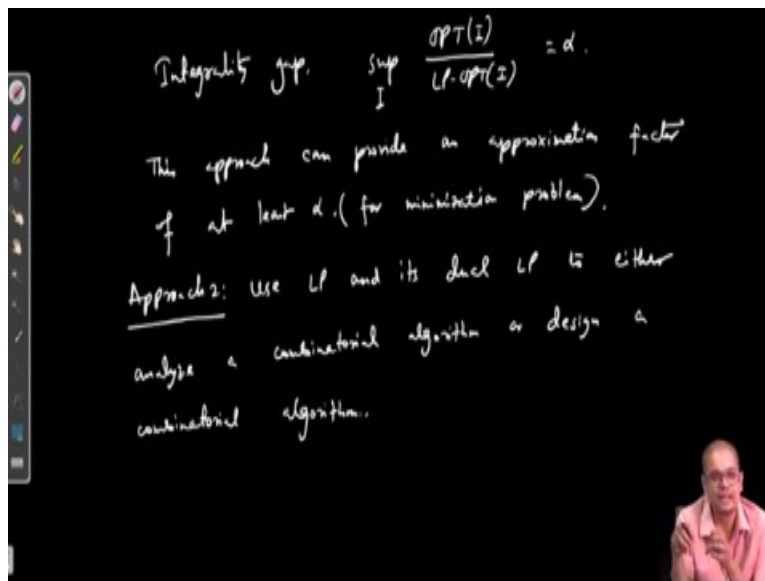 Integrality gap. sup_I OPT(I) / LP-OPT(I) = α.
This approach can provide an approximation factor
of at least α. (for minimisation problem).
Approach 2: Use LP and its dual LP to either
analyze a combinatorial algorithm or design a
combinatorial algorithm..